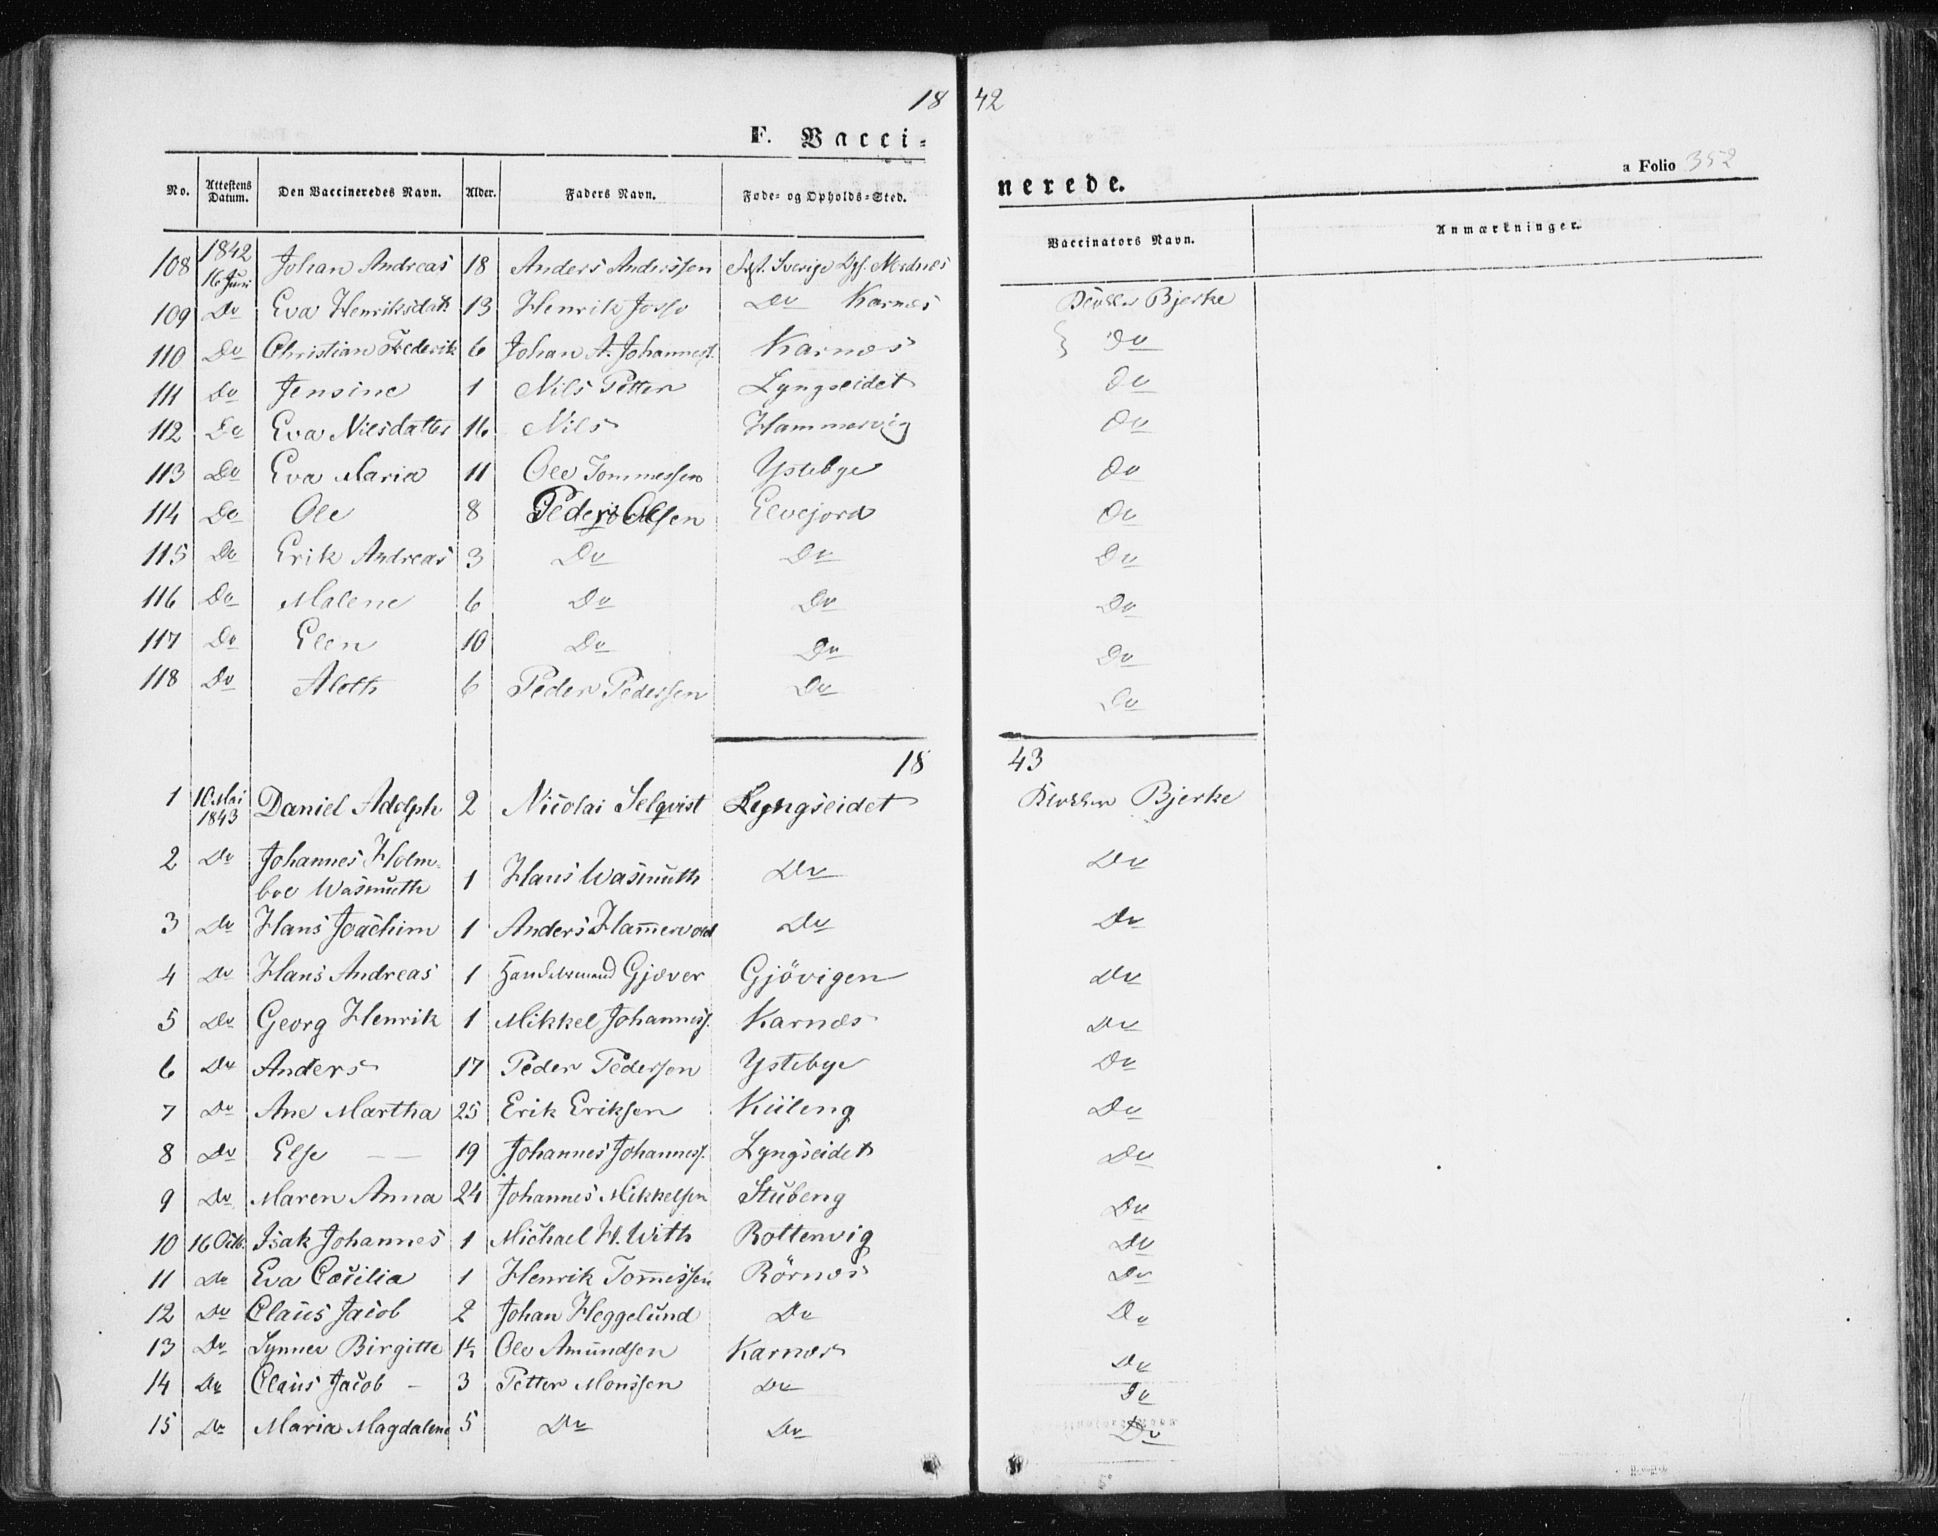 18 42
F. Vacci-
nerede.
a Folio 352
No. Attestens Datum. Den Vaccineredes Navn. Alder. Faders Navn. Føde- og Opholds-Sted. Vaccinators Navn. Anmærkninger.
108 1842 16 Juni Johan Andreas 18 Anders Anderssen Sverige Klokker Bjerke
109 Do Eva Henriksdatt. 13 Henrik Do Karnæs Do
110 Do Christian Frederik 6 Johan A. Johanness. Karnæs
111 Do Jensine 1 Nils Petter Lyngseidet Do
112 Do Eva Nilsdatter 16 Nils Hammervig Do
113 Do Eva Maria 11 Ole Tommessen Ystebye Do
114 Do Ole 8 Peder Olsen Elvejord Do
115 Do Erik Andreas 3 Do Do Do
116 Do Malene 6 Do Do Do
117 Do Elen 10 Do Do Do
118 Do Aleth 6 Peder Pedersen Do Do
18 43
1 10 Mai 1843 Daniel Adolph 2 Nicolai Selqvist Lyngseidet Klokker Bjerke
2 Do Johannes Holm-
boe Wasmuth 1 Hans Wasmuth Do Do
3 Do Hans Joachim 1 Anders Ham̅ervold Do Do
4 Do Hans Andreas 1 Handelsmand Gjæver Gjövigen Do
5 Do Georg Henrik 1 Mikkel Johanness. Karnæs Do
6 Do Anders 17 Peder Pedersen Ystebye Do
7 Do Ane Martha 25 Erik Eriksen Kileng Do
8 Do Else 19 Johannes Johanness. Lyngseidet Do
9 Do Maren Anna 24 Johannes Mikkelsen Stubeng Do
10 16 Octb. Isak Johannes 1 Michael H. With Rottenvig Do
11 Do Eva Cæcilia 1 Henrik Tom̅essen Rörnæs Do
12 Do Claus Jacob 2 Johan Heggelund Do Do
13 Do Synnev Birgitte 1½ Ole Amundsen Karnæs Do
14 Do Claus Jacob 3 Petter Monssen Do Do
15 Do Maria Magdalene 5 Do Do Do